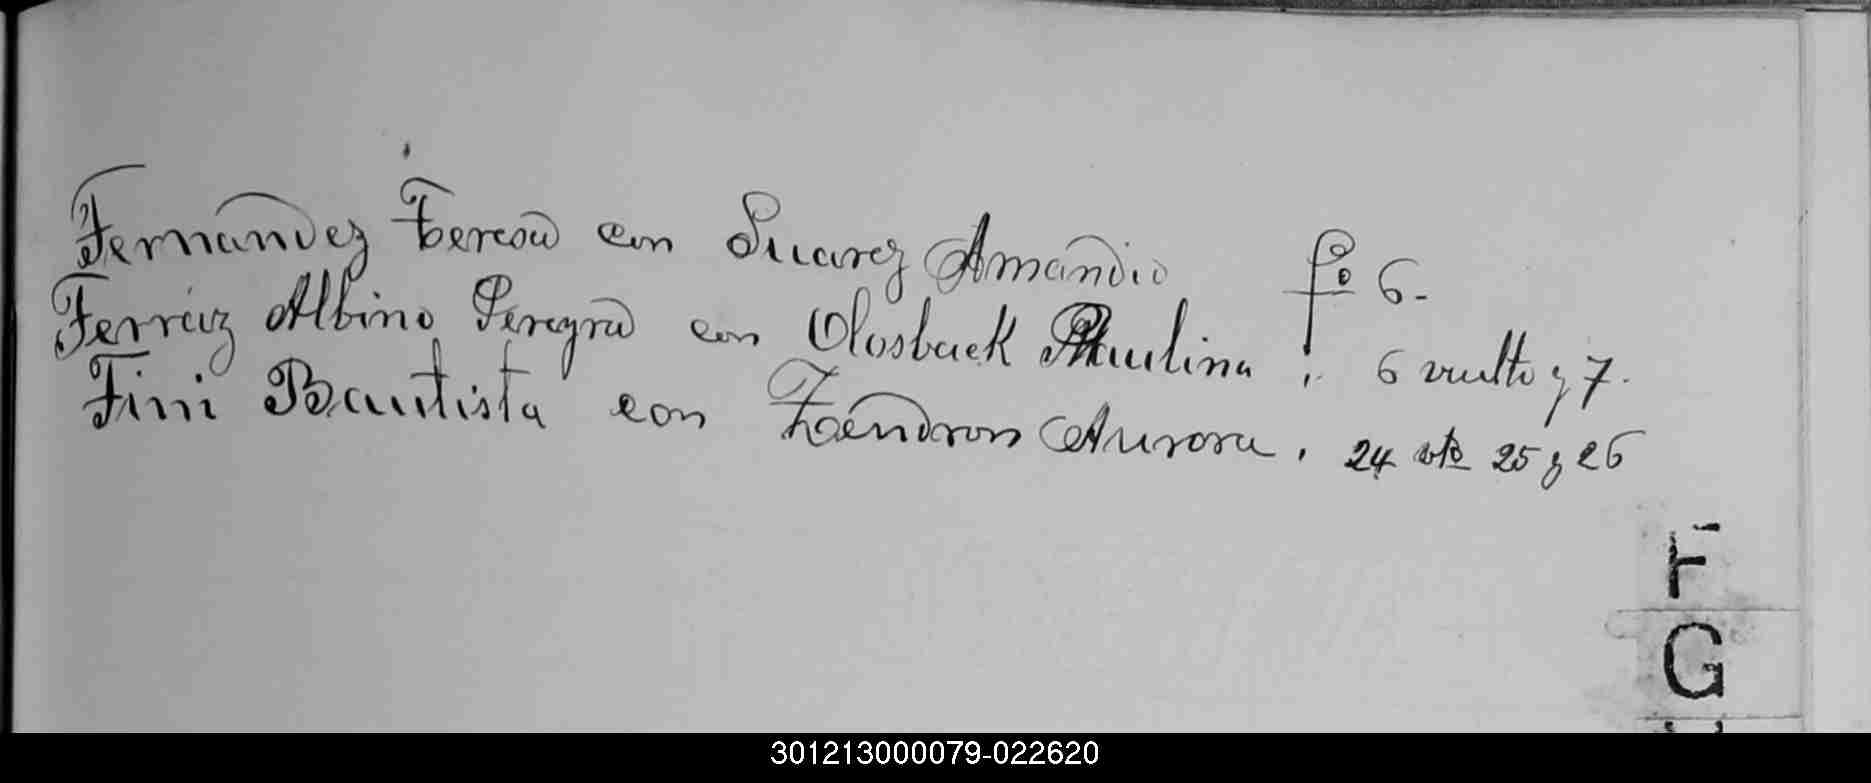 Fernandez Teresa con Suarez Amandio fo 6.
Ferraz Albino Pereyra con Olosback Paulina, 6 vuelto y 7.
Fini Bautista con Zendron Aurora, 24 vto 25 y 26
F
G
301213000079-022620